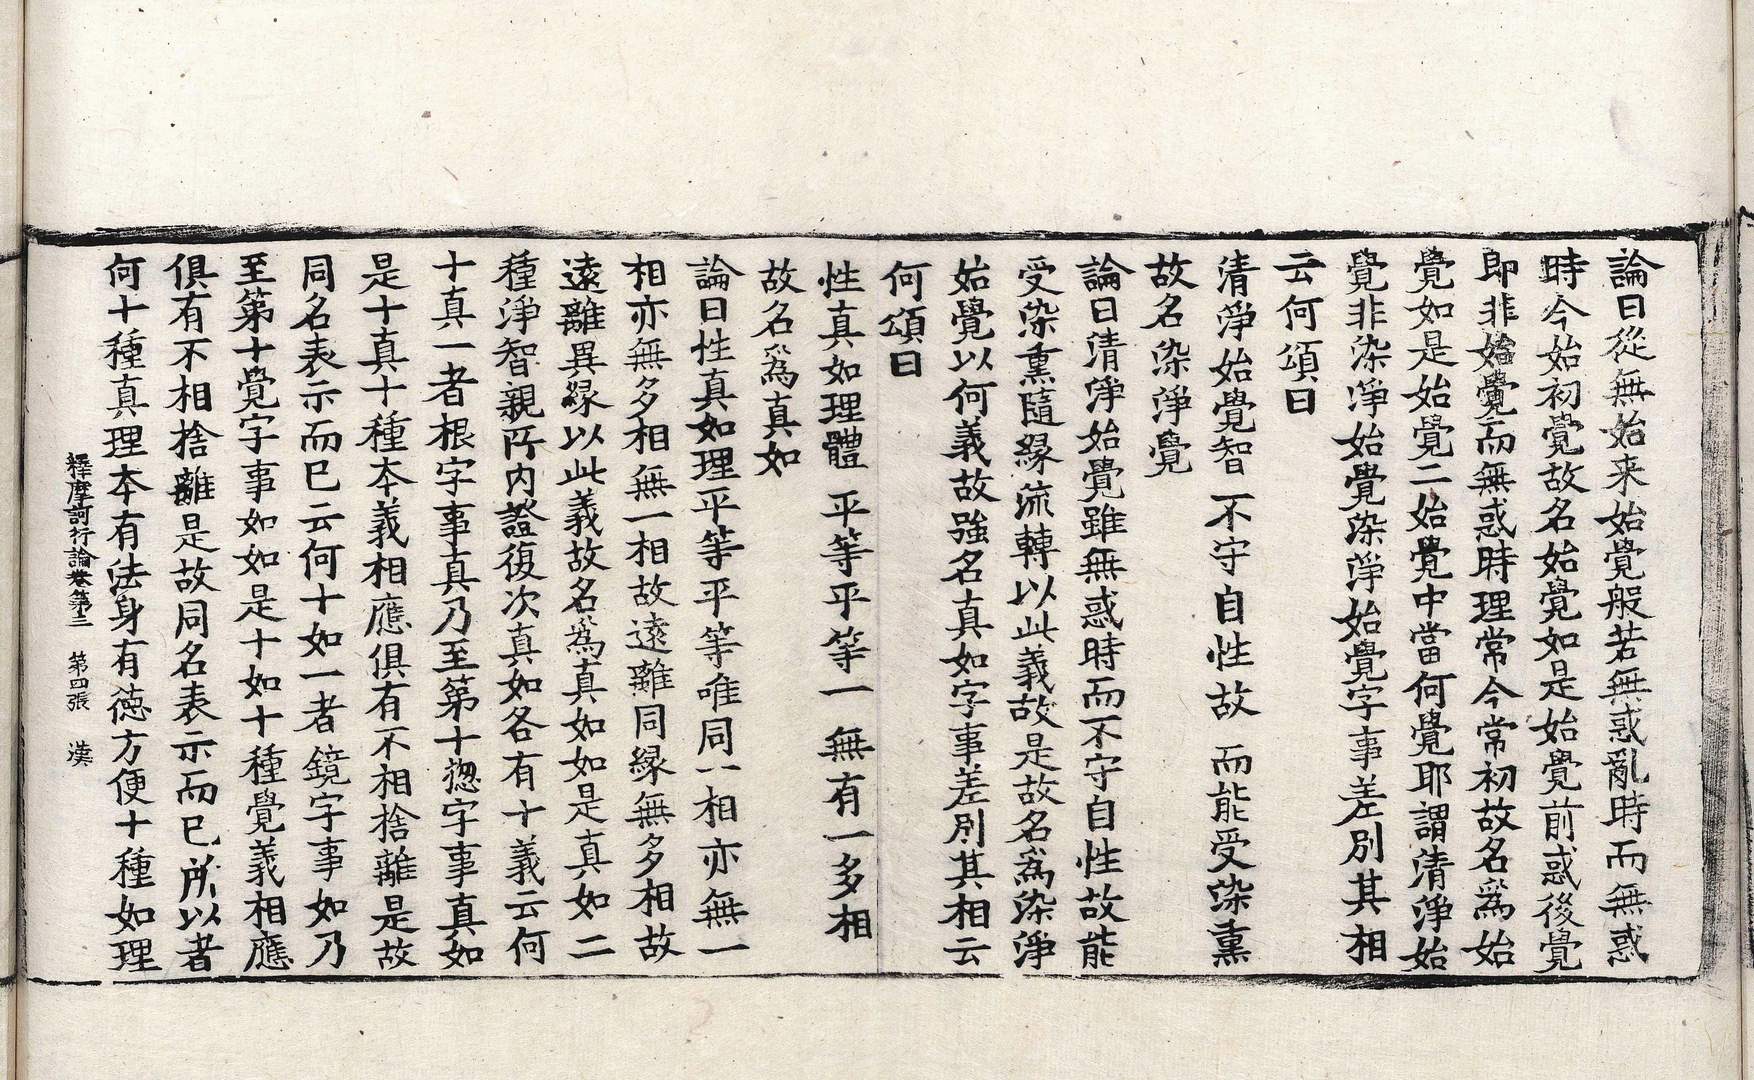 論曰從無始来始覺般若無惑亂時而無惑
時今始初覺故名始覺如是始覺前惑後覺
即非始覺而無惑時理常今常初故名爲始
覺如是始覺二始覺中當何覺耶謂清淨始
覺非染淨始覺染淨始覺字事差別其相
云何頌曰
清淨始覺智 不守自性故 而能受染熏
故名染淨覺
論曰清淨始覺雖無惑時而不守自性故能
受染熏隨緣流轉以此義故是故名爲染淨
始覺以何義故強名真如字事差別其相云
何頌曰
性真如理體 平等平等一 無有一多相
故名爲真如
論曰性真如理平等平等唯同一相亦無一
相亦無多相無一相故遠離同縁無多相故
遠離異縁以此義故名爲真如如是真如二
種淨智親所内證復次真如各有十義云何
十真一者根字事真乃至第十摠字事真如
是十真十種本義相應俱有不相捨離是故
同名表示而已云何十如一者鏡字事如乃
至第十覺字事如如是十如十種覺義相應
俱有不相捨離是故同名表示而已所以者
何十種真理本有法身有徳方便十種如理
釋摩訶衍論卷第三 第四張 漢